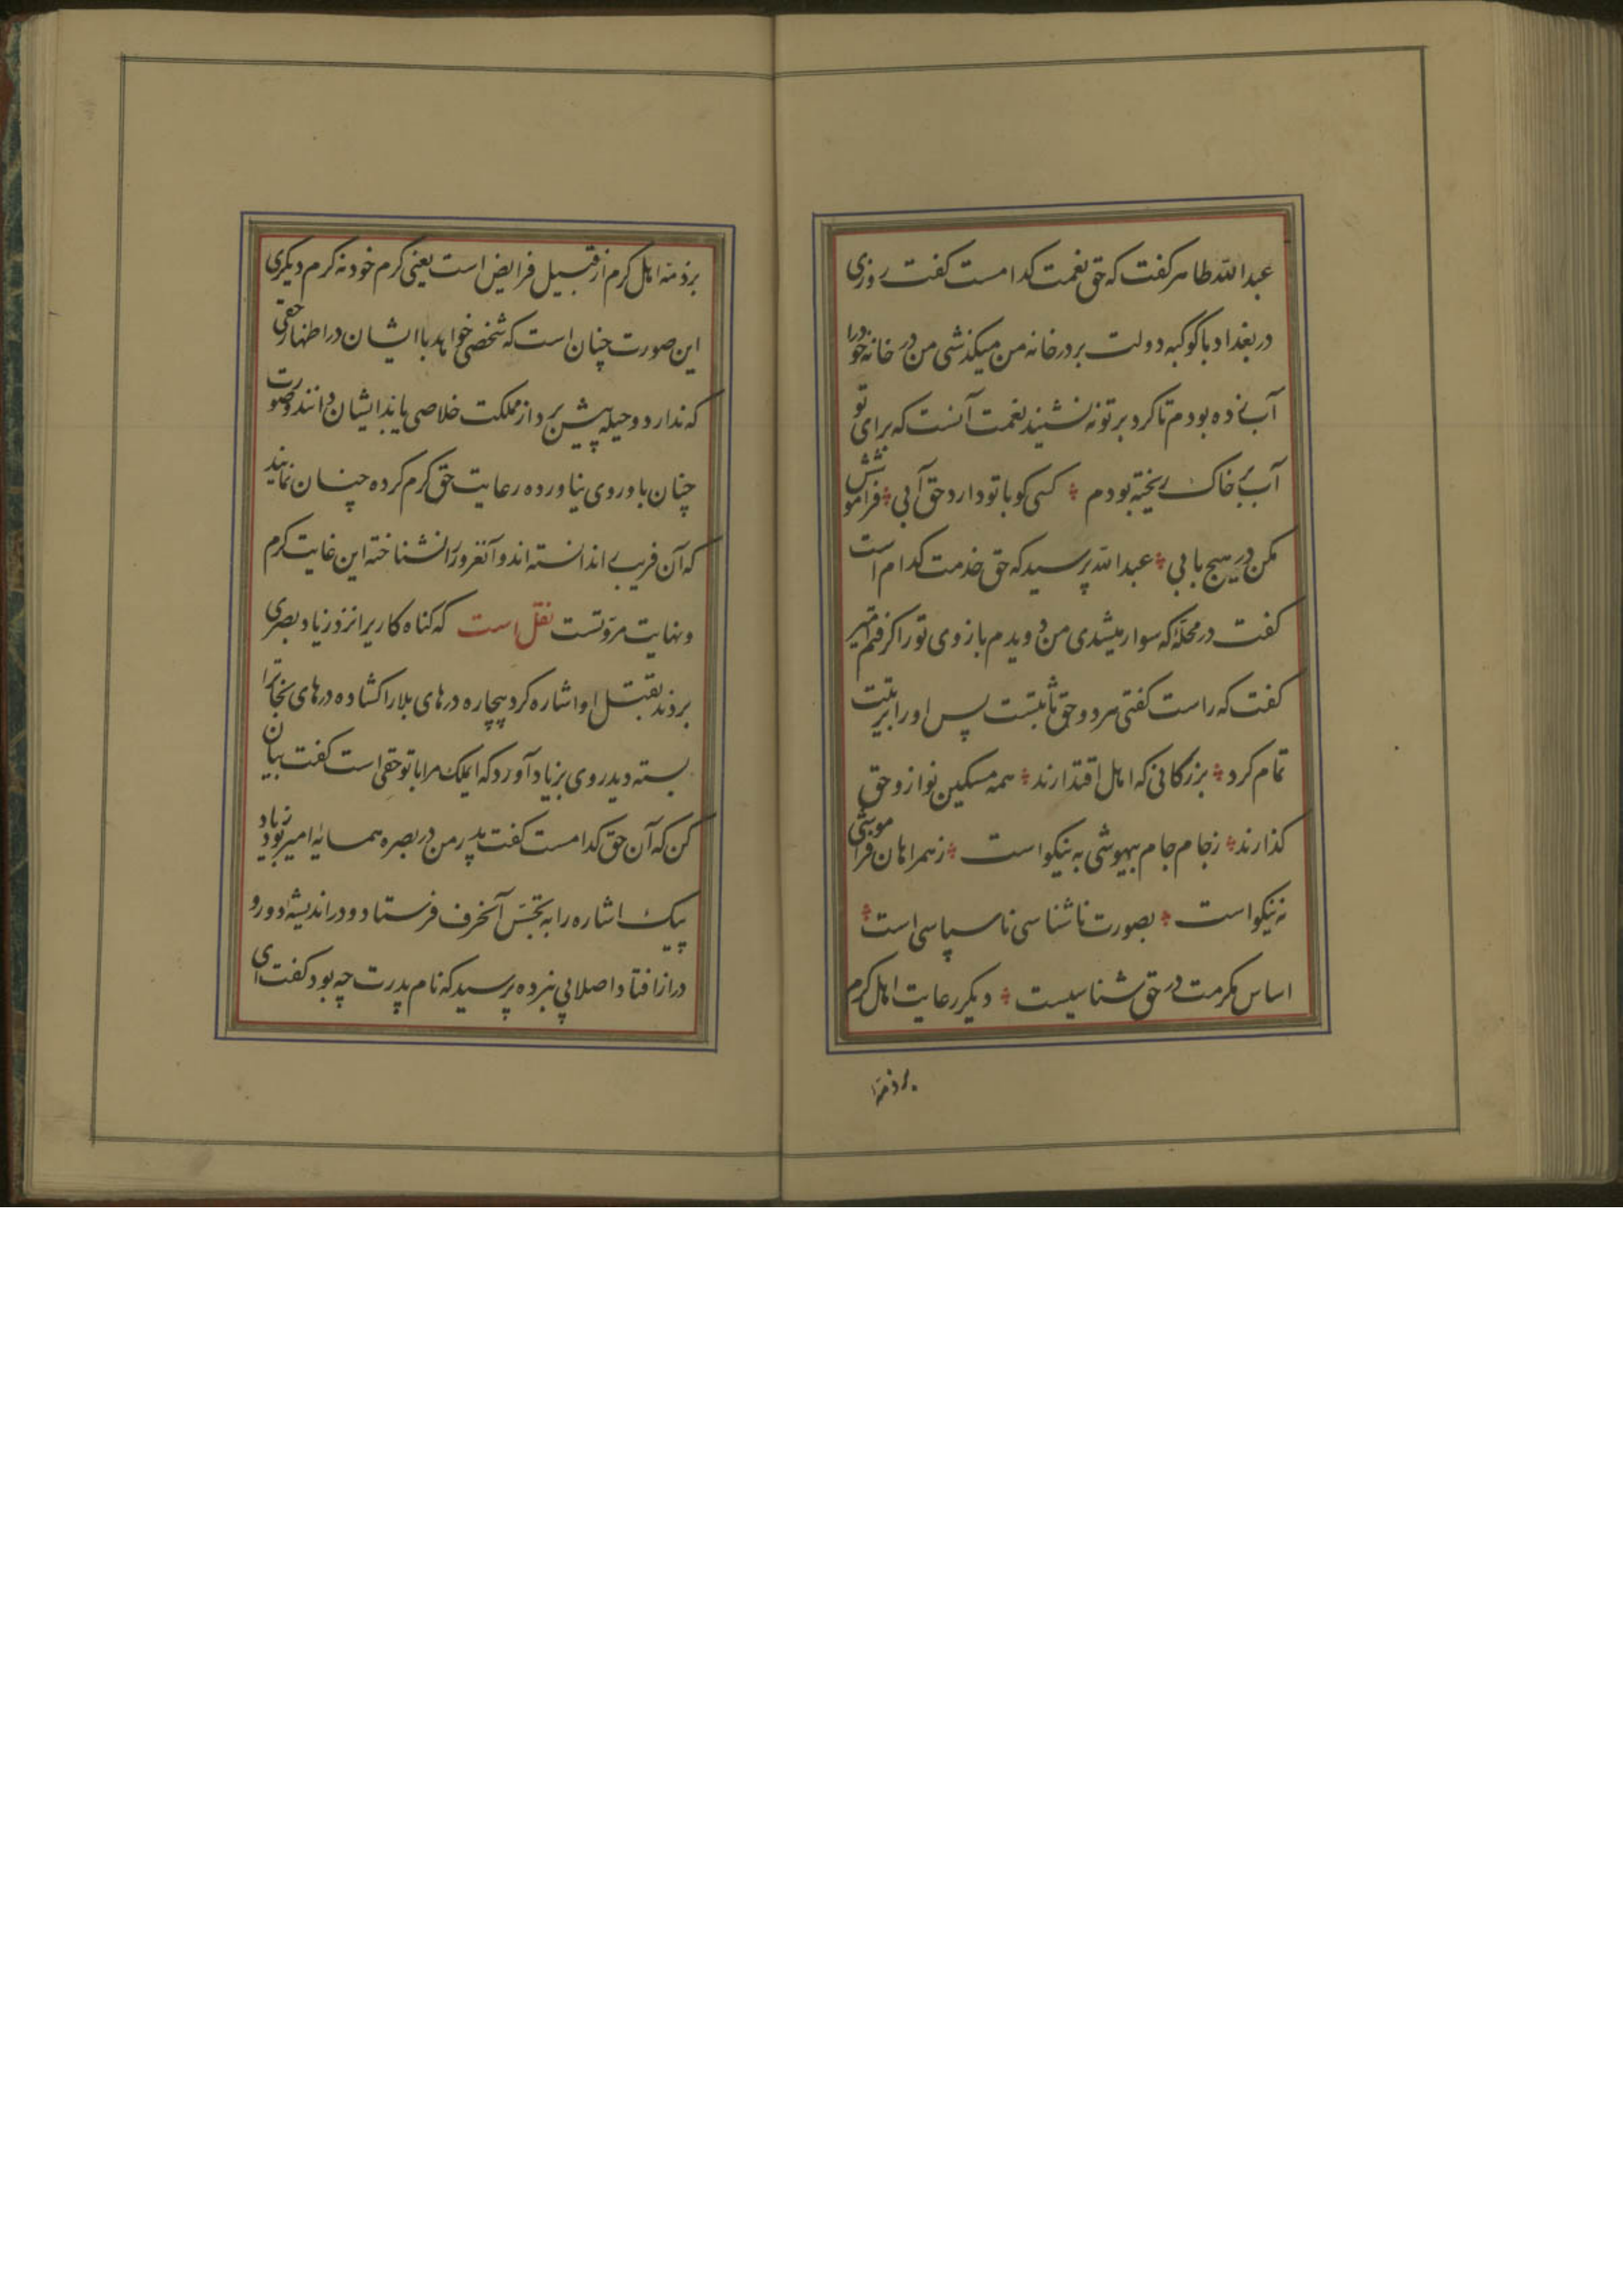 عبدالله طاهر کفت که حق نعمت کدامست کفت روزی
در بغداد با کوکبه دولت بر در خانه من میکذشی من در خانه خودرا
آب زده بودم تا کرد بر تو نه نشیند نعمت آنست که برای تو
آب بر خاک ریخته بودم ؞ کسی کو با تو دارد حق آبی ؞ فراموشش
مکن در هیچ بابی ؞ عبدالله پرسید که حق خدمت کدام است
کفت در محلّه که سوار میشدی من دویدم بازوی تورا کرفتم امیر
کفت که راست کفتی هر دو حق ثابتست پس اورا تربیت
تمام کرد ؞ بزرکانی که اهل اقتدارند ؞ همه مسکین نواز و حق
کذارند ؞ زجام جام بیهوشی به نیکواست ؞ زهمراهان فراموشی
نه نیکواست ؞ بصورت ناشناسی ناسپاسی است ؞
اساس مکرمت در حق شناسیست ؞ دیکر رعایت اهل کرم
بر ذمّه
بر ذمّه اهل کرم از قبیل فرایض است یعنی کرم خود نه کرم دیکری
این صورت چنان است که شخصی خواهد با ایشان در اظهار حقی
که ندارد و حیله پیش برد از مملکت خلاصی یابد ایشان دانند و صورت
چنان با وروی نیاورده رعایت حق کرم کرده چنان نمایند
که آن فریب را ندانسته اند و آنغرور را نشناخته این غایت کرم
و نهایت مروّتست نقل است که کناه کاریرا نزد زیاد بصری
بردند بقتل او اشاره کرد بیچاره درهای بلا را کشاده درهای نجاترا
بسته دید روی بزیاد آورد که ایملک مرا با تو حقی است کفت بیان
کن که آن حق کدامست کفت پدر من در بصره همسایهٔ امیر بود زیاد
پیک اشاره را به تجسّس آنحرف فرستاد و در اندیشهٔ دورو
دراز افتاد اصلا پی نبرده پرسید که نام پدرت چه بود کفت ای